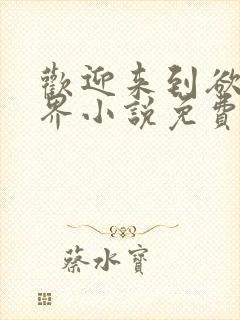 歡迎来到欲
界小説免費
蔡水寶